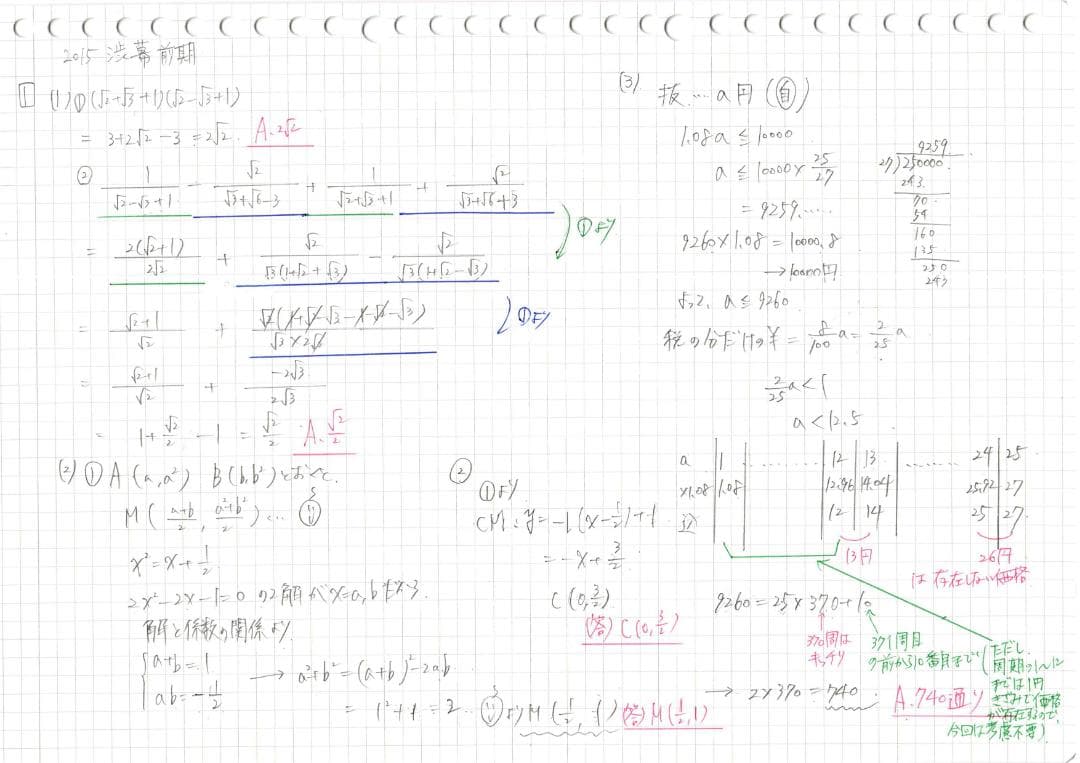 2015 渋幕前期
1
(1)①(√2+√3+1)(√2-√3+1)
= 3+2√2-3 = 2√2. A. 2√2
② 1/(√2-√3+1) - √2/(√3+√6-3) + 1/(√2+√3+1) + √2/(√3+√6+3)
①より
= 2(√2+1)/2√2 + √2/√3(1+√2+√3) - √2/√3(1+√2-√3)
= (√2+1)/√2 + √2(1+√2-√3-1-√2-√3)/(√3×2√2)
①より
= (√2+1)/√2 + -2√3/2√3
= 1+√2/2 -1 = √2/2 A. √2/2
(2) ① A(a,a²) B(b,b²)とおくと、
M((a+b)/2, (a²+b²)/2)…
x²=x+1/2
2x²-2x-1=0 の2解がx=a,bだから
解と係数の関係より
a+b=1
ab=-1/2
→ a²+b²=(a+b)²-2ab
= 1²+1 = 2…
より M(1/2, 1) (答) M(1/2,1)
②
①より
CM: y=-1(x-1/2)+1
=-x+3/2
C(0,3/2)
(答) C(0,3/2)
(3) 抜…a円(自)
1.08a≦10000
a≦10000×25/27
=9259.….
9260×1.08=10000.8
→10000円
よって、a≦9260
9259
27)250000
243
70
54
160
135
250
243
税の分だけの¥=8/100 a=2/25 a
2/25 a<1
a<12.5
a 1 ……… 12 13 ……… 24 25
×1.08 1.08 12.96 14.04 25.92 27
12 14 25 27
13円 26円
は存在しない価格
9260=25×370+10
370周はきっちり
371周目
の前から10番目まで
(ただし、
周期の12
までは1円
きざみで価格
が存在するので、
今回は考慮不要)
→ 2×370=740 A. 740通り